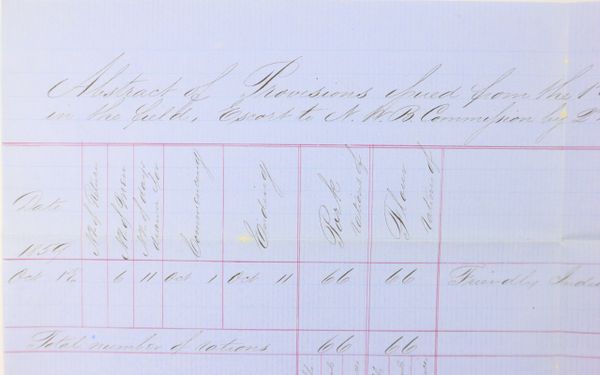 Abstract of Provisions issued from the 1
in the field, Escort to N. W. B. Commission by
Date
1859
No of Return
No of Men
No of days drawn for
Commencing
Ending
Pork
rations of
Flour
rations of
Oct 12 6 11 Oct 1 Oct 11 66 66 Friendly India
Total number of rations 66 66